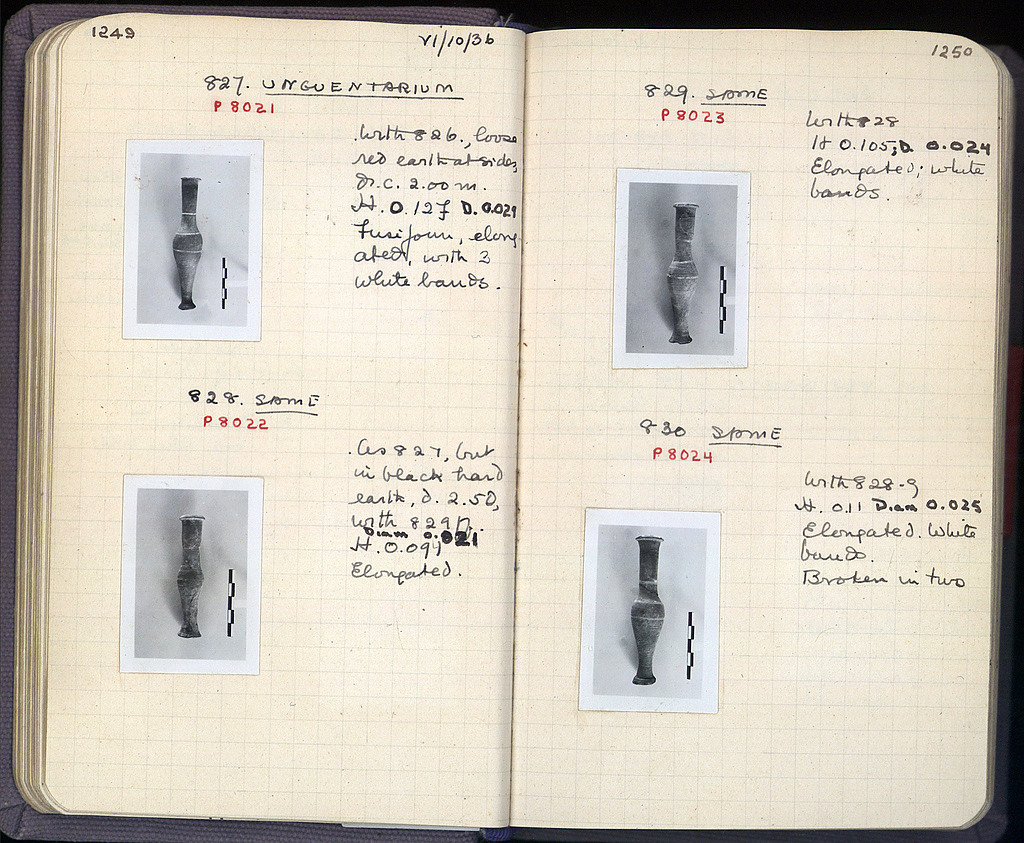 1249
VI/10/36
827. UNGUENTARIUM
P 8021
With 826., loose
red earth at sides,
d. c. 2.00 m.
H. 0.127 D. 0.029
Fusiform, elong-
ated, with 3
white bands.
828. SAME
P 8022
As 827, but
in black hard
earth, d. 2.50,
with 829
Diam 0.021
H. 0.099
Elongated.
1250
829. SAME
P 8023
With 828
H 0.105; D. 0.024
Elongated; white
bands.
830 SAME
P 8024
With 828-9
H. 0.11 Diam 0.025
Elongated. White
bands.
Broken in two